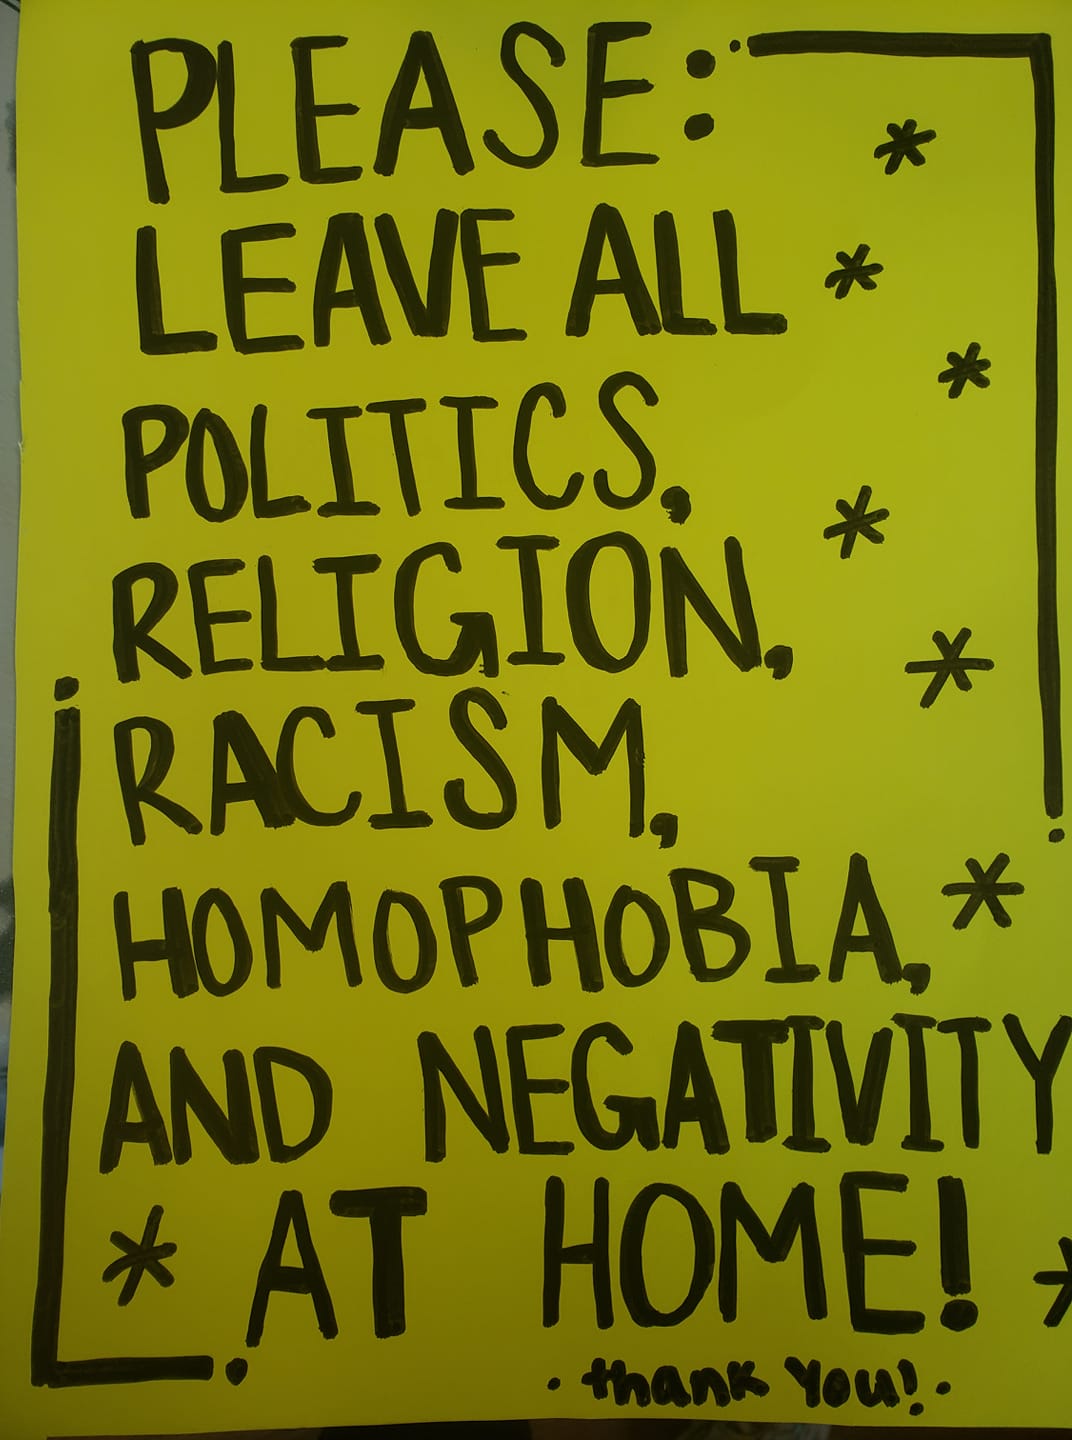 PLEASE:
LEAVE ALL
POLITICS,
RELIGION,
RACISM,
HOMOPHOBIA,
AND NEGATIVITY
AT HOME!
thank you!